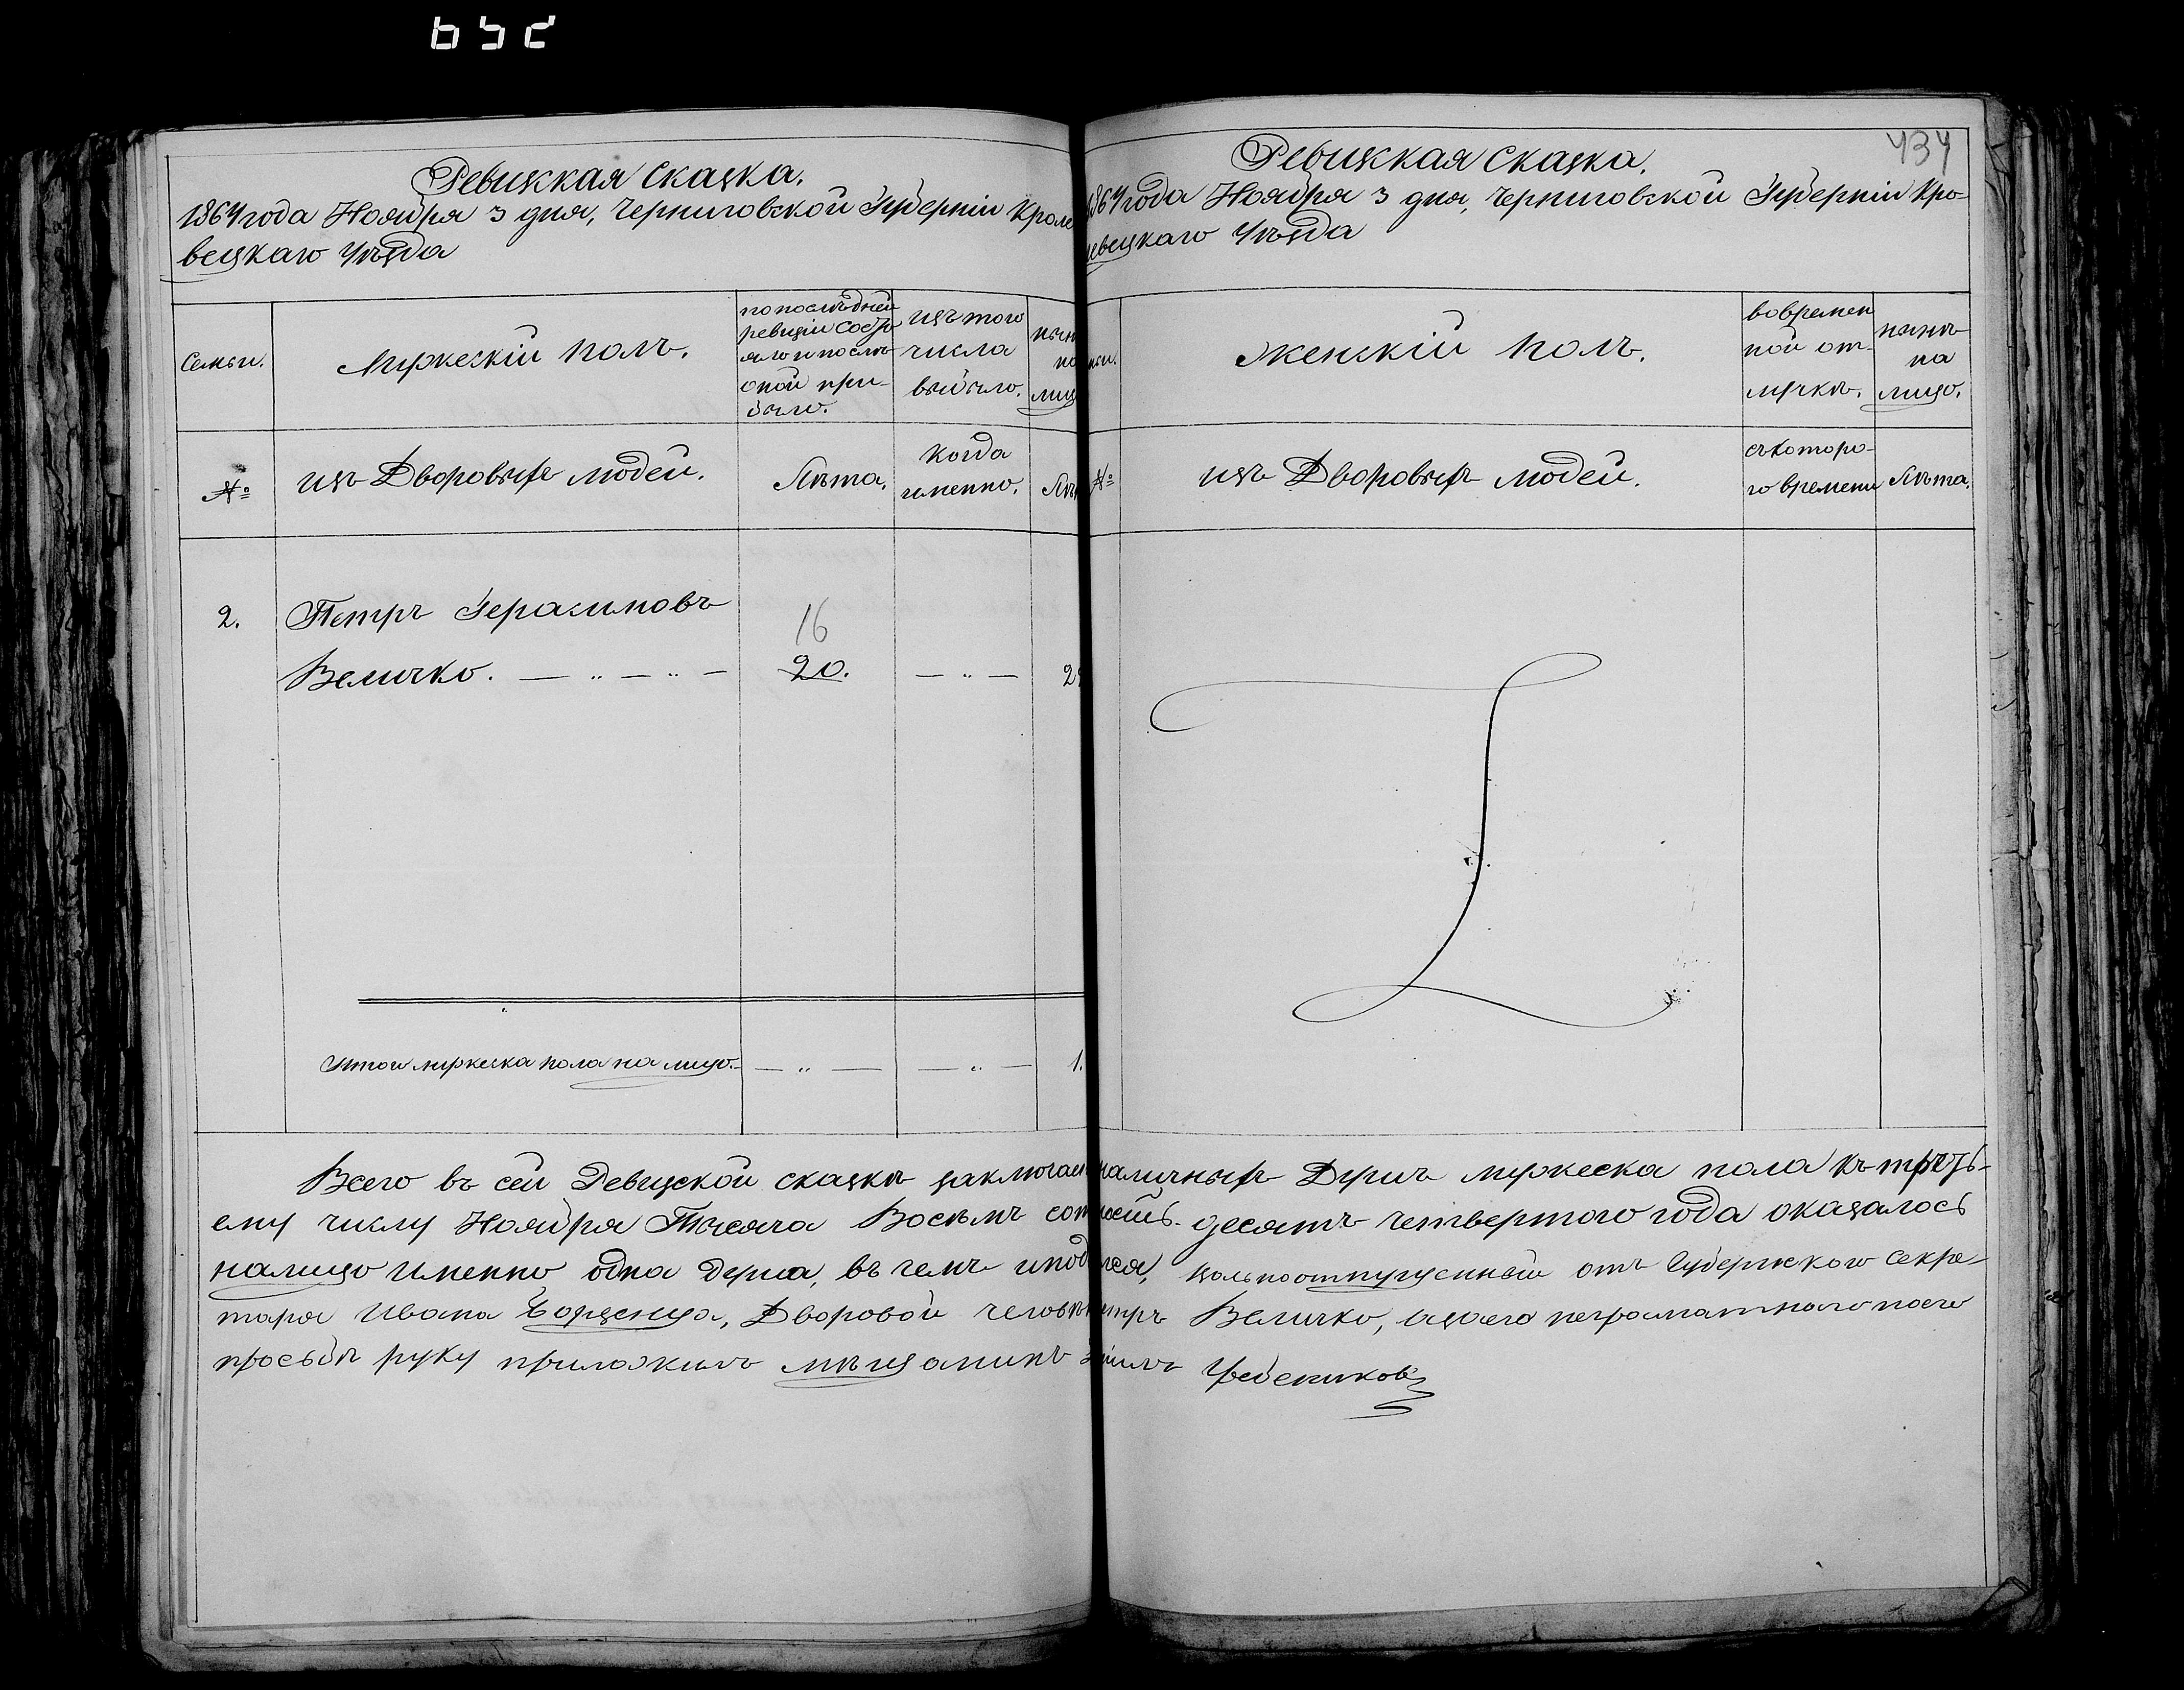 434
Ревизкая сказка.
1864 года Ноября 3 дня, Черниговской Губерніи Кроле
вецкаго Уѣзда
Семьи.
Мужескій полъ.
по послѣдней
ревизіи состо
яло и послѣ
оной при-
было.
изъ того
числа
выбыло.
нын
на
лиц
№
изъ Дворовыхъ людей.
Лѣта.
когда
именно.
Лѣт
2.
Петръ Герасимовъ
16
Величко.
20.
Итого мужеска пола на лицо.
1.
Ревизкая сказка.
1864 года Ноября 3 дня, Черниговской Губерніи Кро-
левецкаго Уѣзда
Женскій полъ.
во времен
ной от-
лучкѣ.
нынѣ
на
лицо.
№
изъ Дворовыхъ людей.
съ которо-
го времени
Лѣта.
Всего въ сей Ревизской сказкѣ заключает наличныхъ Душъ мужеска пола къ треть-
ему числу Ноября Тысяча Восѣмъ сот десятъ четвертого года оказалось
налицо именно одна душа, въ чемъ и под вольноотпущенный отъ Губернского Секре-
таря Ивана Дворовой человѣкъ Петръ Величко, а за его неграматного по его
прозьбѣ руку приложилъ мѣщанинъ